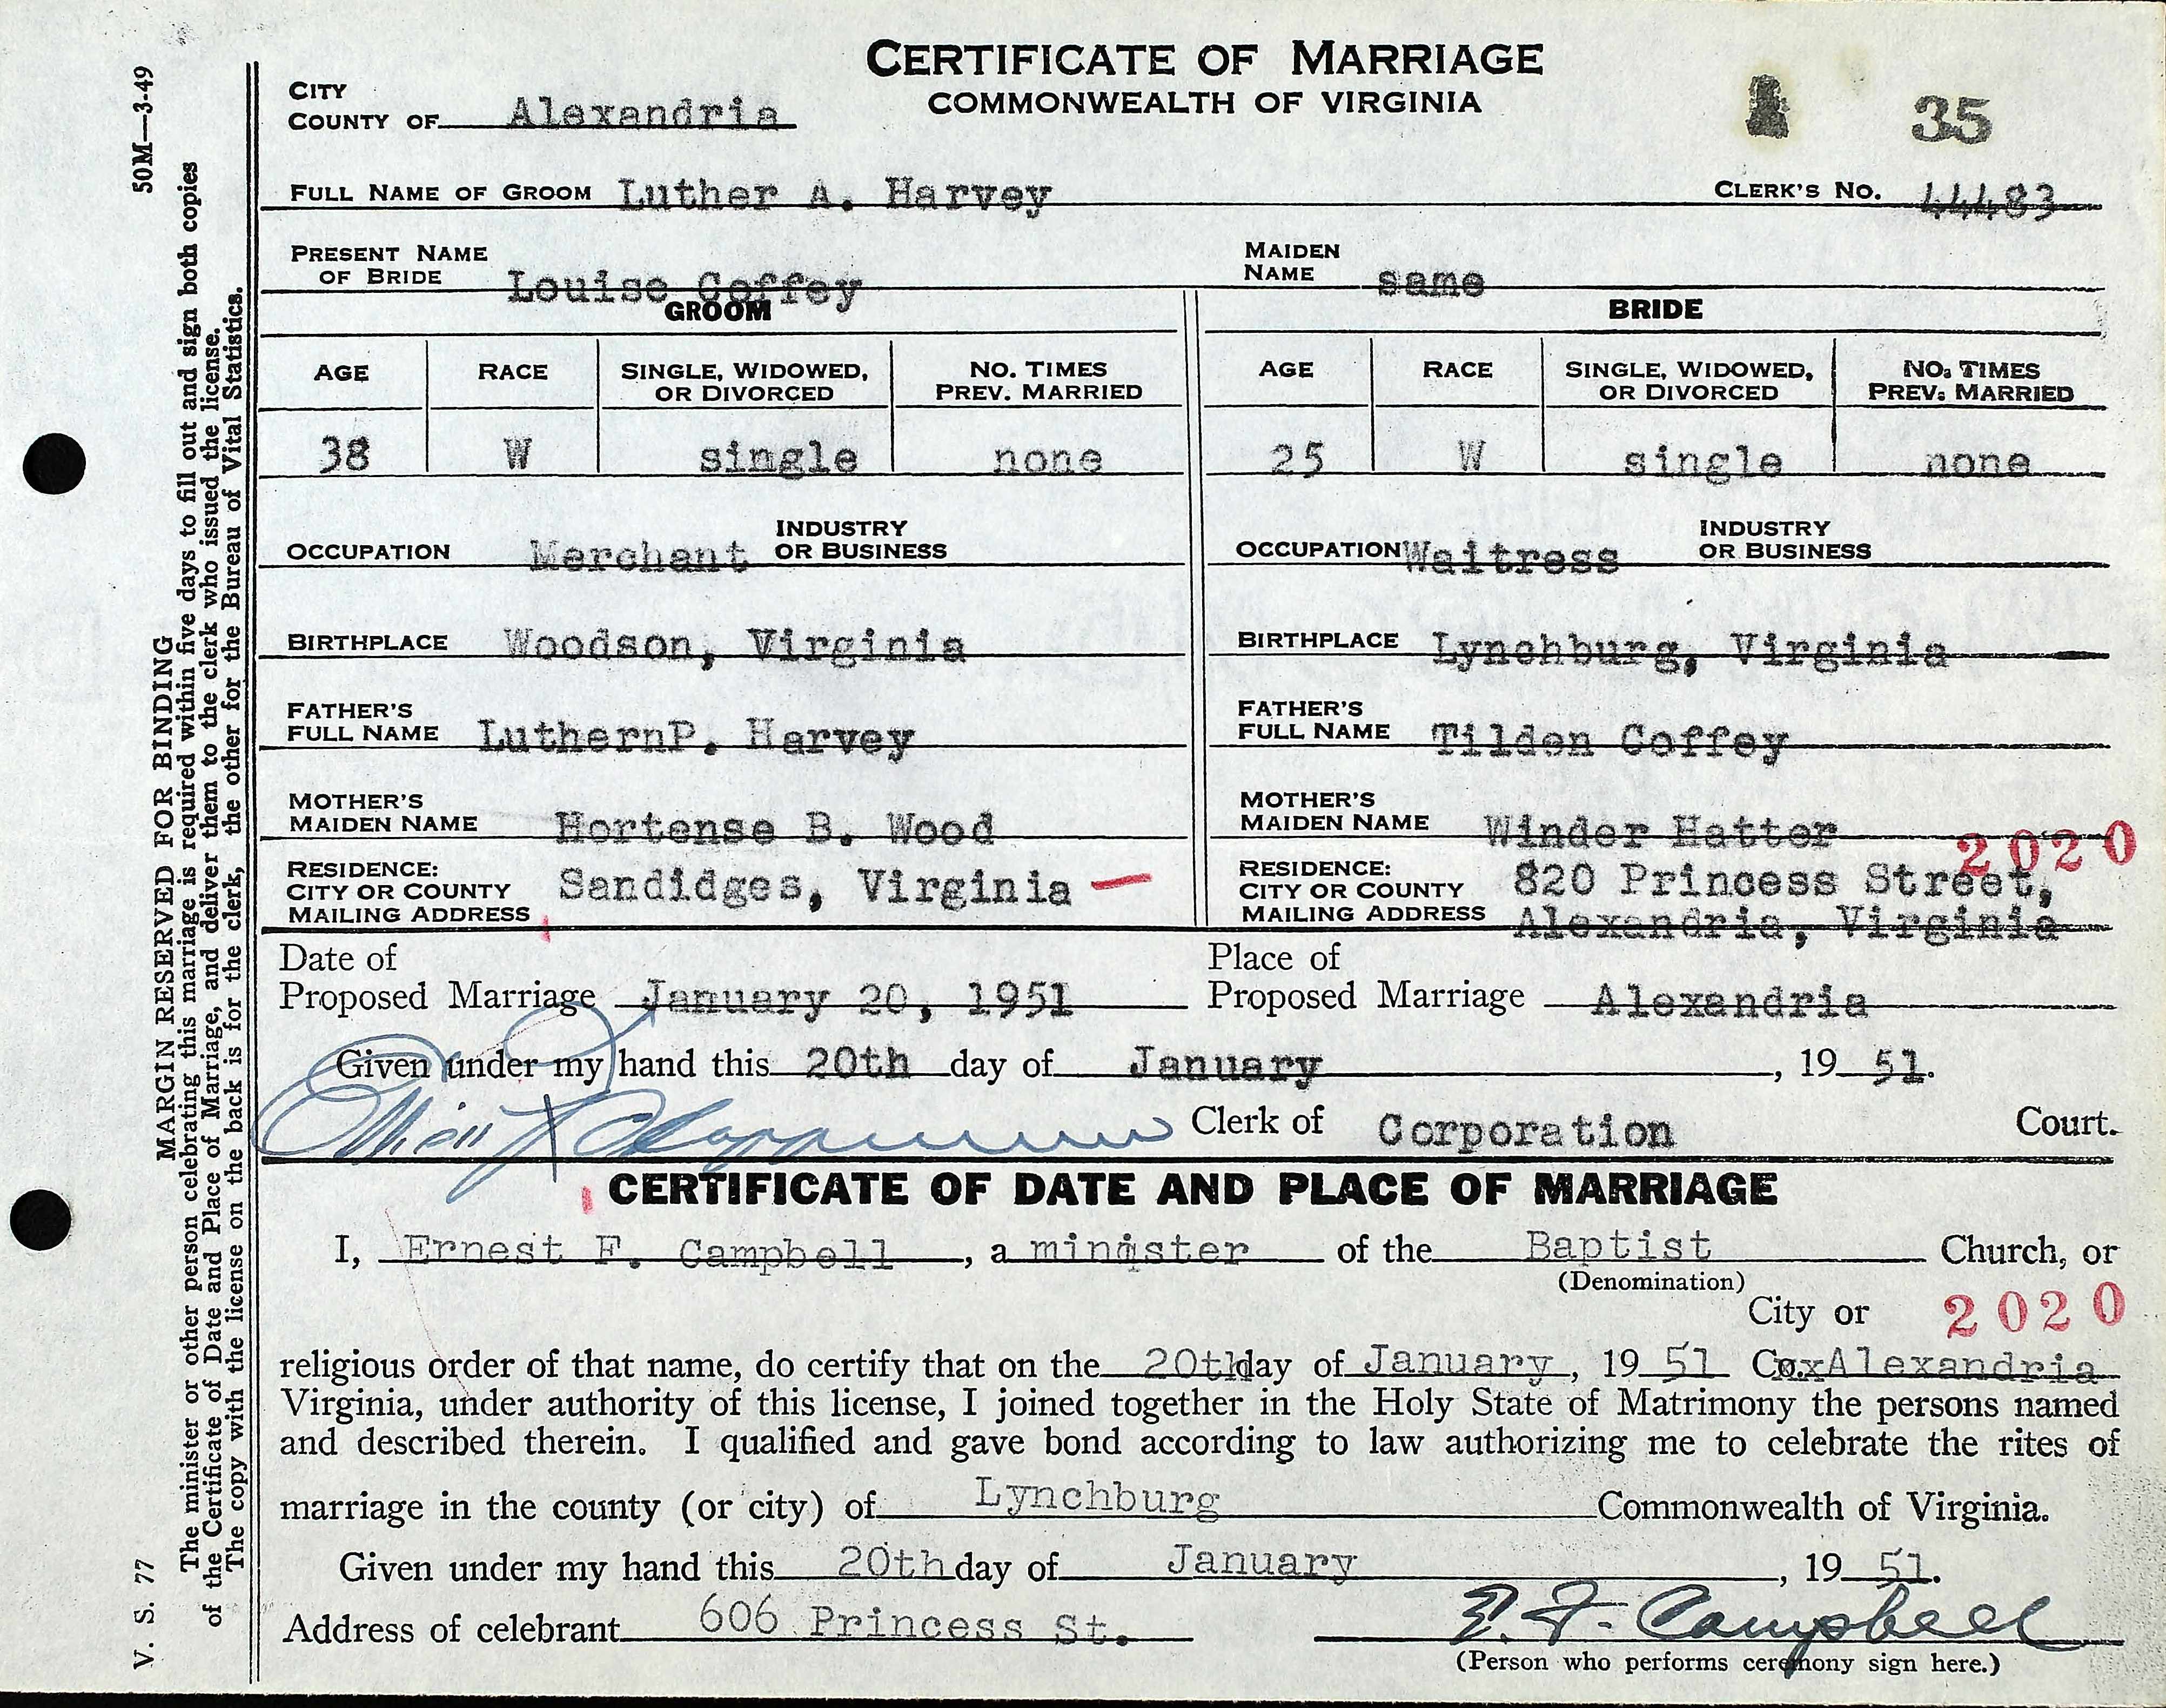 CERTIFICATE OF MARRIAGE
COMMONWEALTH OF VIRGINIA
CITY
COUNTY OF Alexandria
35
FULL NAME OF GROOM Luther A. Harvey CLERK'S NO. 44483
PRESENT NAME OF BRIDE Louise Coffey MAIDEN NAME same
GROOM BRIDE
AGE RACE SINGLE, WIDOWED, OR DIVORCED NO. TIMES PREV. MARRIED AGE RACE SINGLE, WIDOWED, OR DIVORCED NO. TIMES PREV. MARRIED
38 W single none 25 W single none
OCCUPATION Merchant INDUSTRY OR BUSINESS OCCUPATION Waitress INDUSTRY OR BUSINESS
BIRTHPLACE Woodson, Virginia BIRTHPLACE Lynchburg, Virginia
FATHER'S FULL NAME LuthernP. Harvey FATHER'S FULL NAME Tilden Coffey
MOTHER'S MAIDEN NAME Hortense B. Wood MOTHER'S MAIDEN NAME Winder Hatter
2020
RESIDENCE: CITY OR COUNTY MAILING ADDRESS Sandidges, Virginia RESIDENCE: CITY OR COUNTY MAILING ADDRESS 820 Princess Street,
Alexandria, Virginia
Date of Proposed Marriage January 20, 1951 Place of Proposed Marriage Alexandria
Given under my hand this 20th day of January, 19 51.
Clerk of Corporation Court.
CERTIFICATE OF DATE AND PLACE OF MARRIAGE
I, Ernest F. Campbell, a minister of the Baptist Church, or
(Denomination)
City or 2020
religious order of that name, do certify that on the 20th day of January, 19 51 Co. Alexandria
Virginia, under authority of this license, I joined together in the Holy State of Matrimony the persons named
and described therein. I qualified and gave bond according to law authorizing me to celebrate the rites of
marriage in the county (or city) of Lynchburg Commonwealth of Virginia.
Given under my hand this 20th day of January, 19 51.
Address of celebrant 606 Princess St. E. F. Campbell
(Person who performs ceremony sign here.)
V. S. 77 50M—3-49
MARGIN RESERVED FOR BINDING
The minister or other person celebrating this marriage is required within five days to fill out and sign both copies
of the Certificate of Date and Place of Marriage, and deliver them to the clerk who issued the license.
The copy with the license on the back is for the clerk, the other for the Bureau of Vital Statistics.